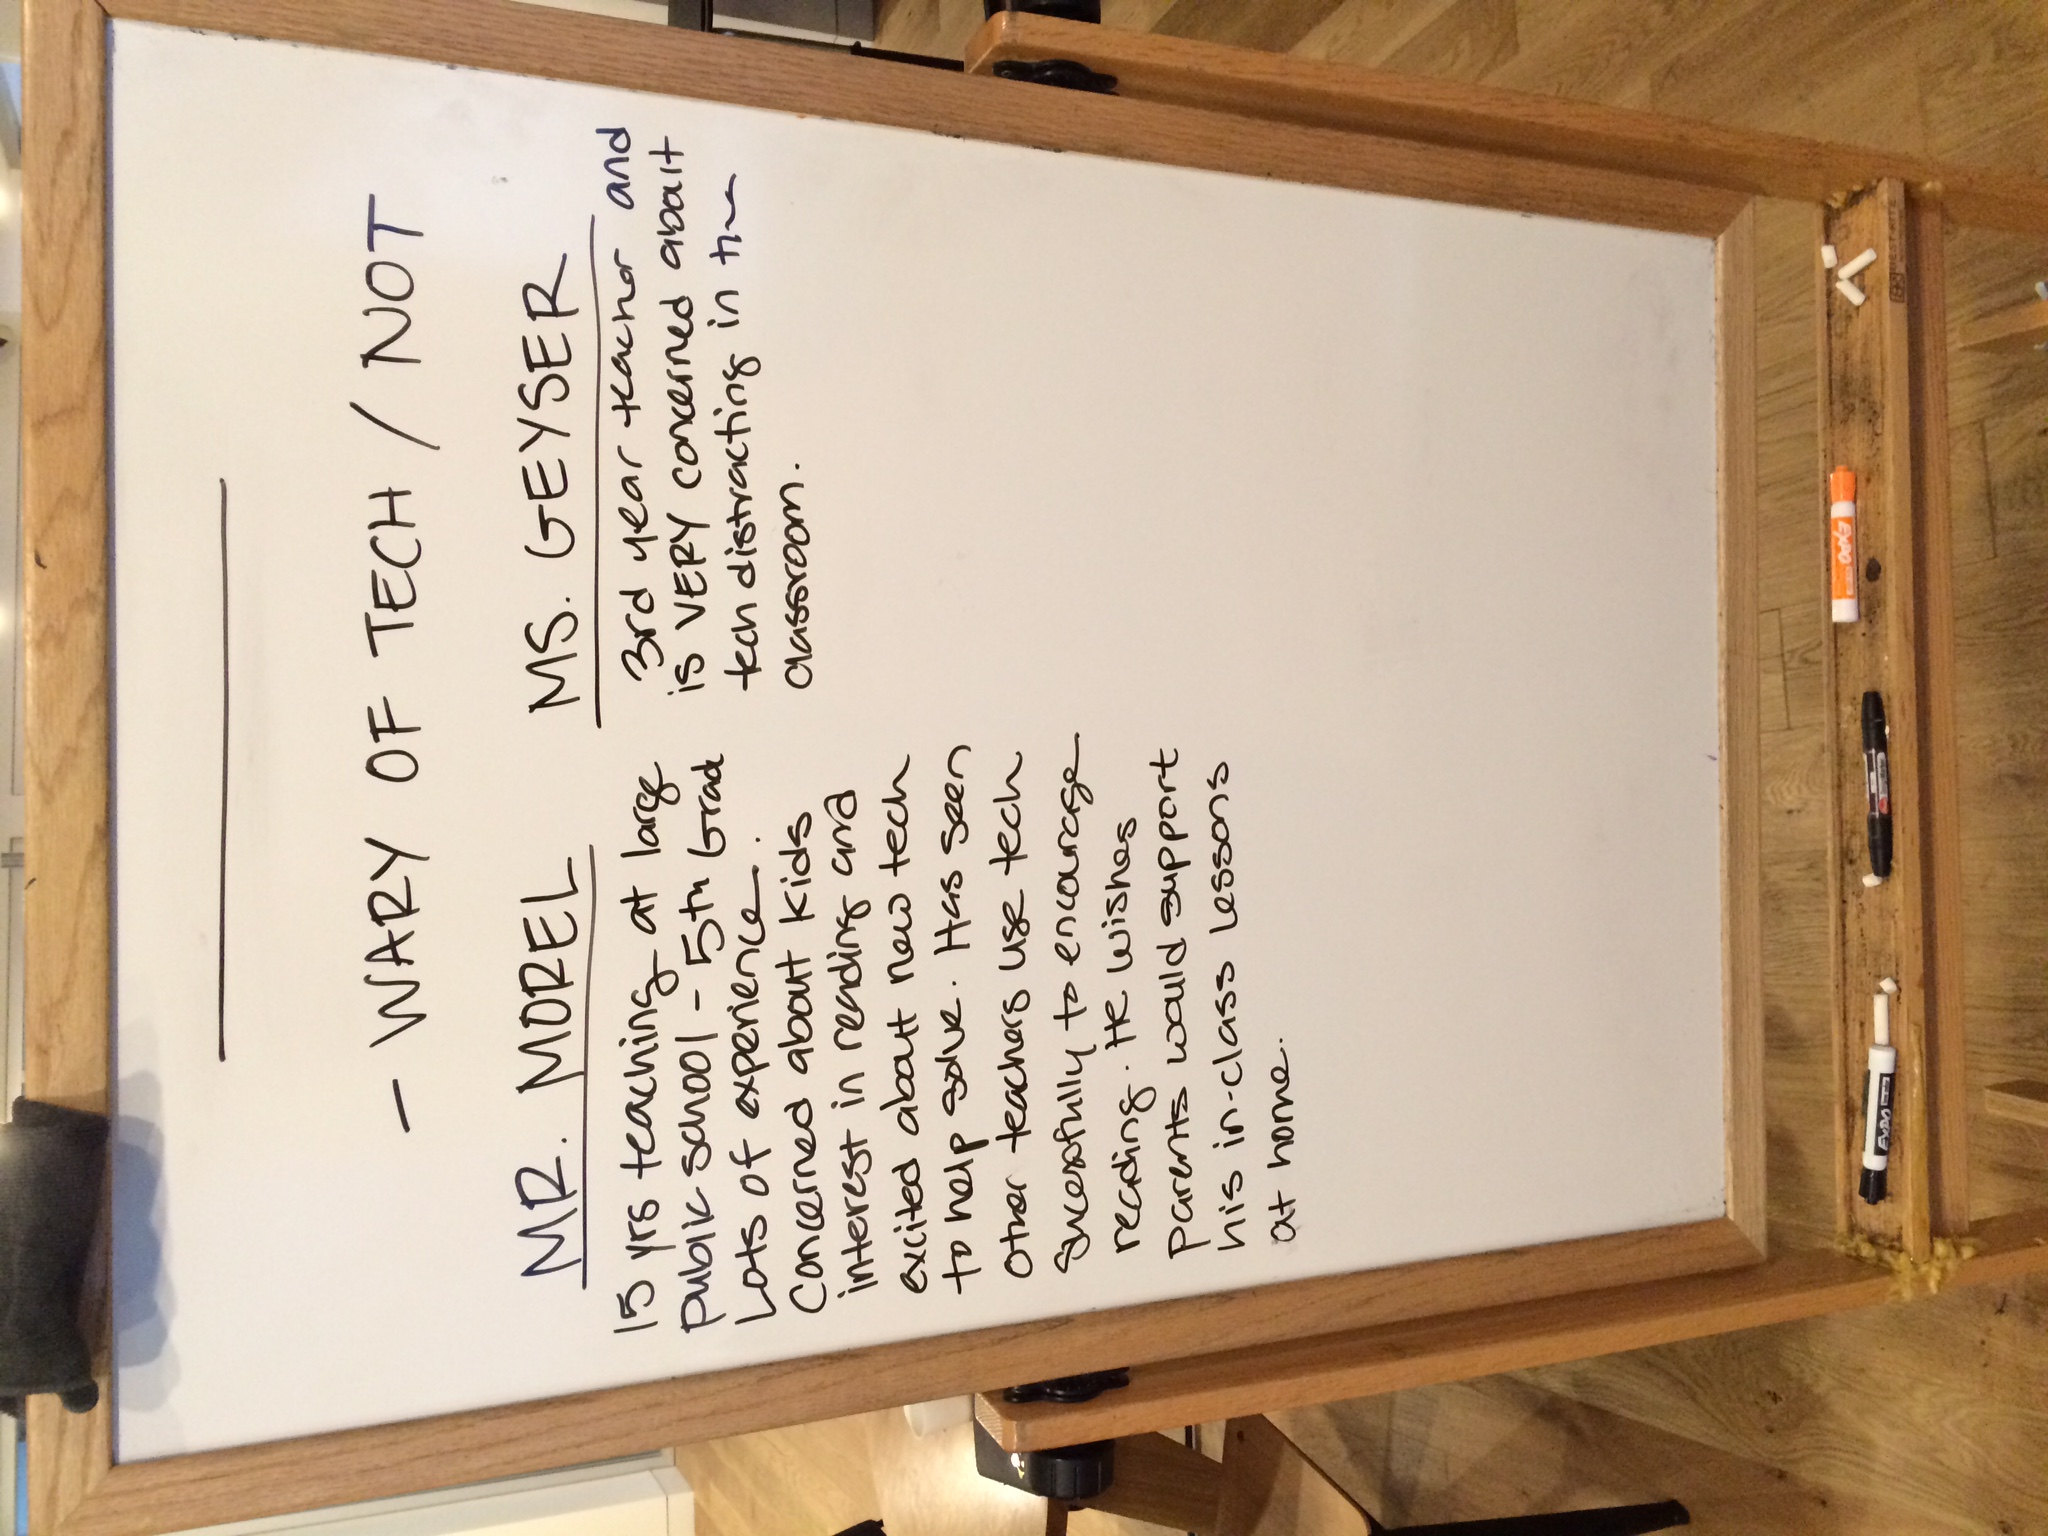 - WARY OF TECH / NOT
MR. MOREL
15 yrs teaching at large
public school - 5th Grade
Lots of experience.
Concerned about kids
interest in reading and
excited about new tech
to help solve. Has seen
other teachers use tech
sucessfully to encourage
reading. He wishes
parents would support
his in-class lessons
at home.
MS. GEYSER
3rd year teacher and
is VERY concerned about
tech distracting in the
classroom.
EXPO
EXPO
BEST-RITE